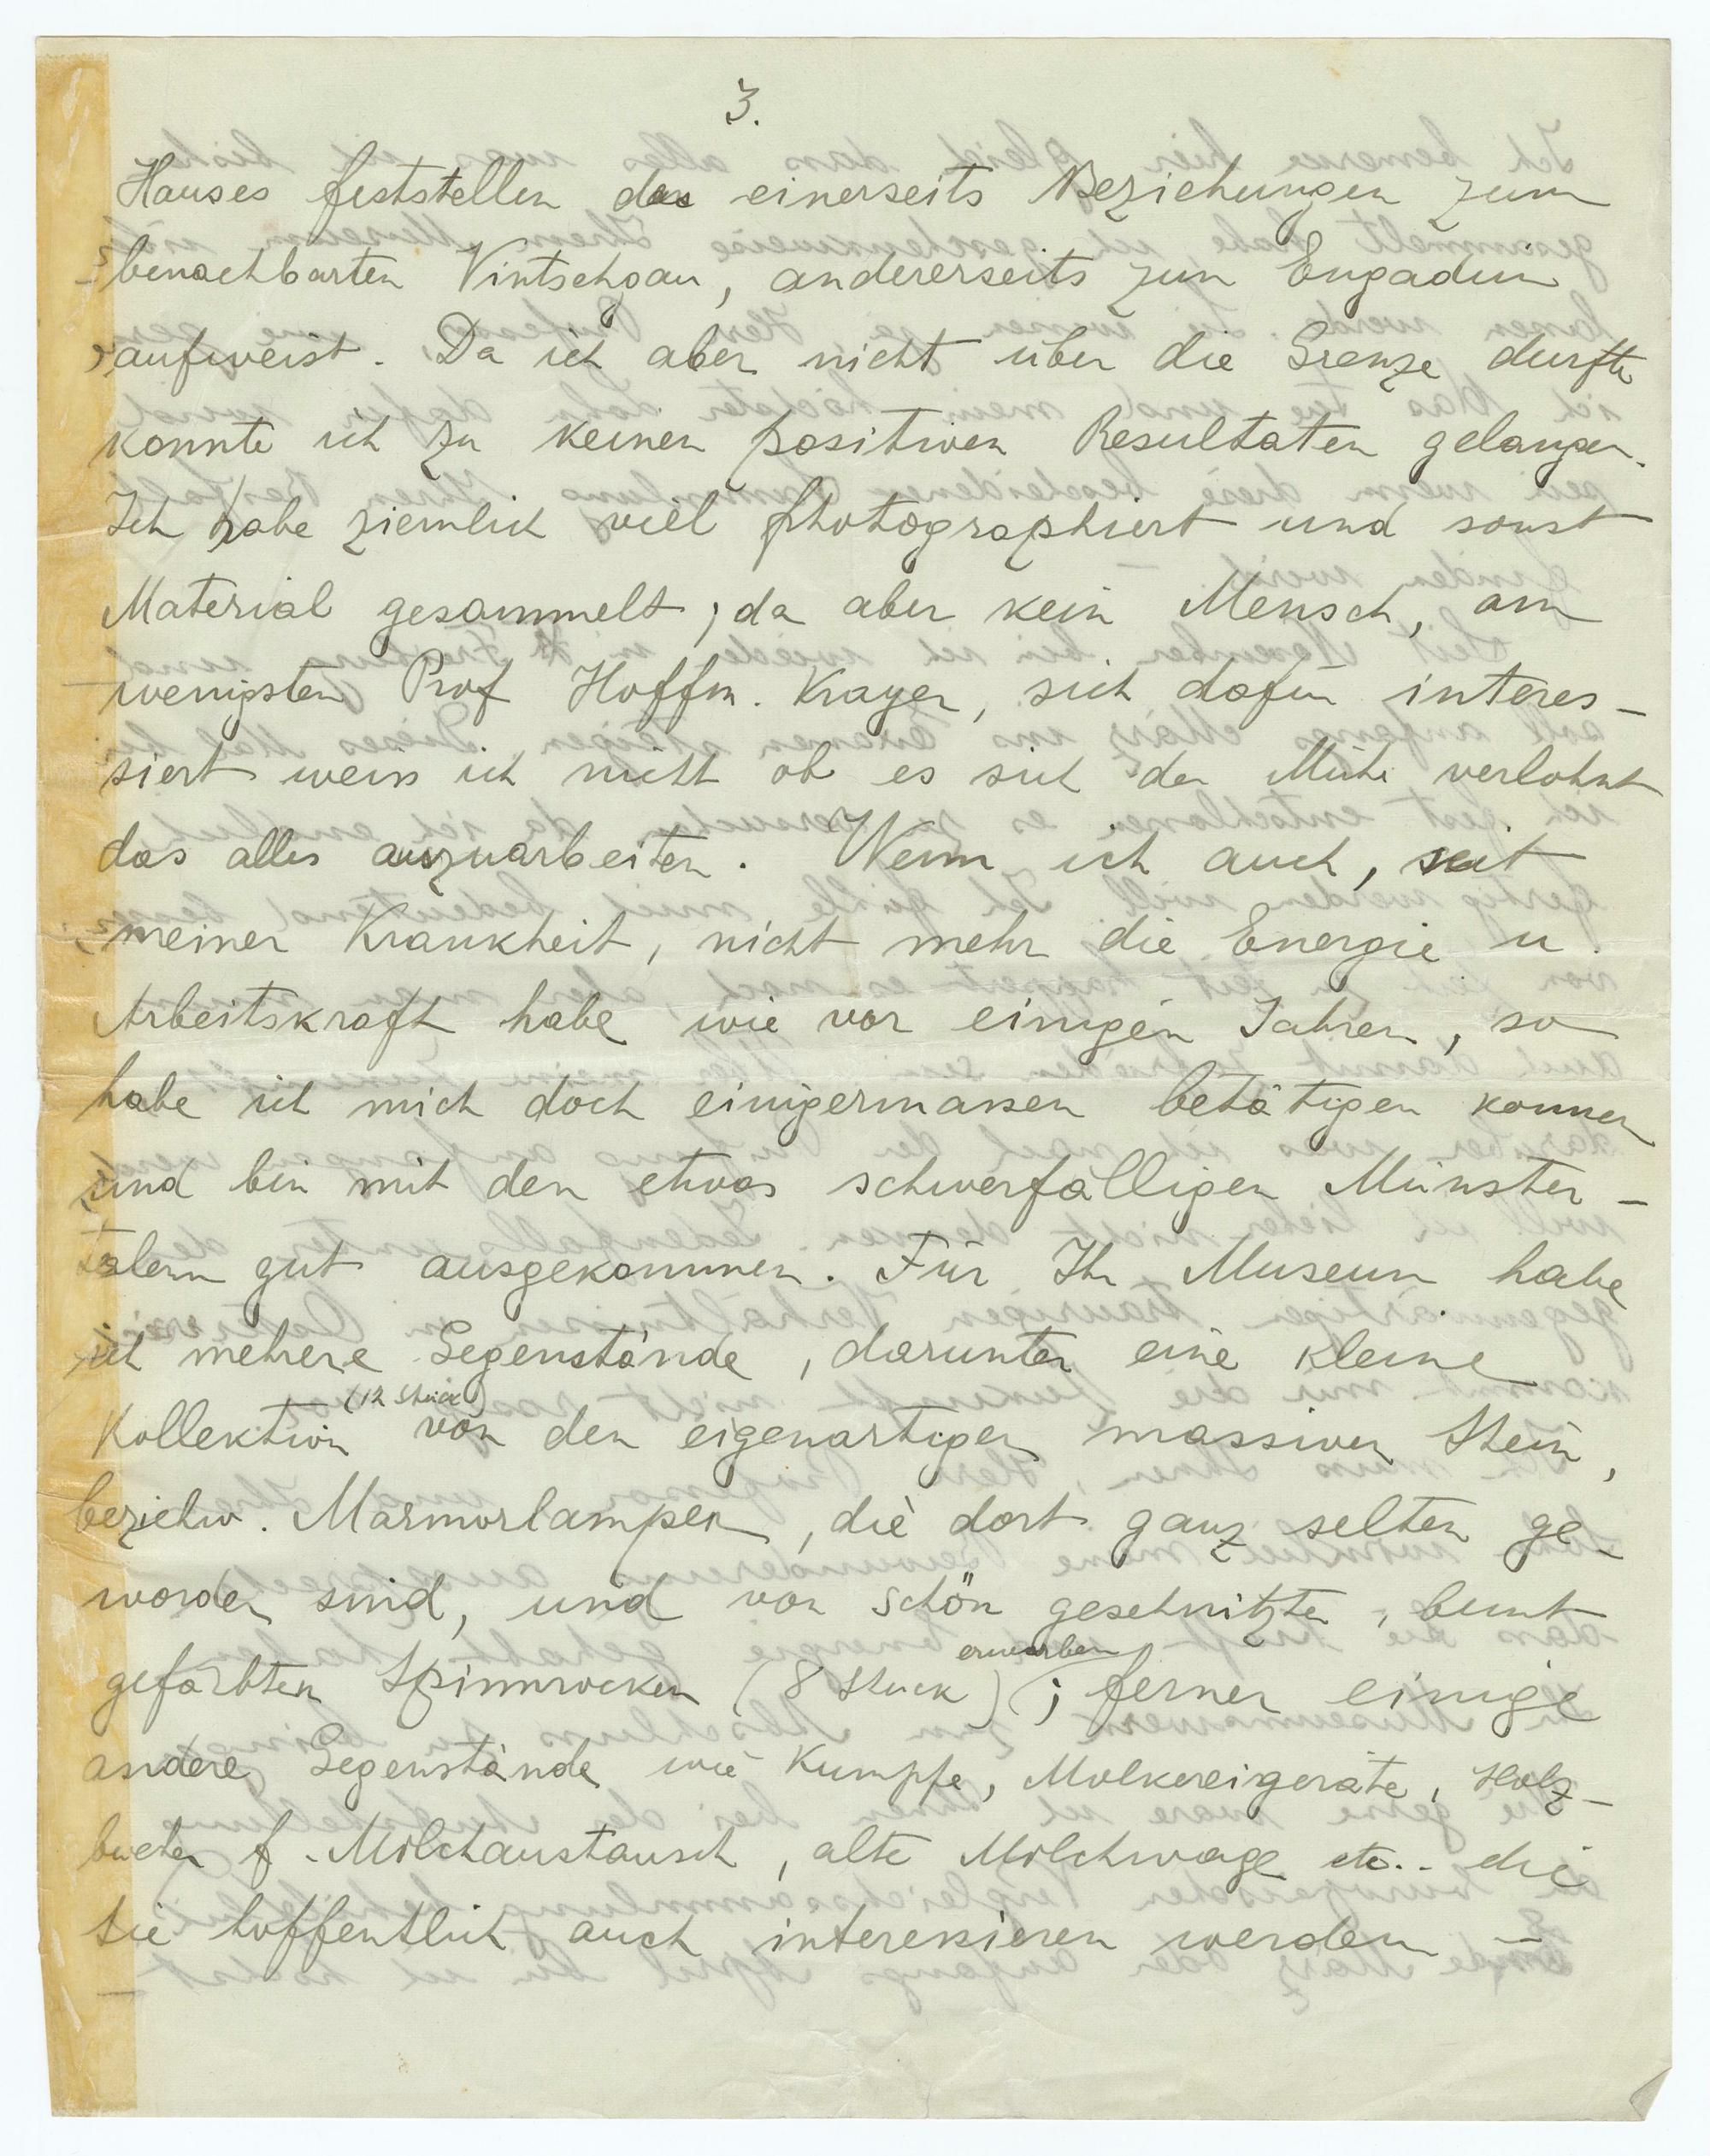 3.
Hauses feststellen das einerseits Beziehungen zum
benachbarten Vintschgau, andererseits zum Engadin
aufweist. Da ich aber nicht über die Grenze durfte
konnte ich zu keinen positiven Resultaten gelangen.
Ich habe ziemlich viel photographiert und sonst
Material gesammelt; da aber kein Mensch, am
wenigsten Prof Hoffm. Krayer, sich dafür interes-
siert weiss ich nicht ob es sich der Mühe verlohnt
das alles auszuarbeiten. Wenn ich auch, seit
meiner Krankheit, nicht mehr die Energie u.
Arbeitskraft habe wie vor einigen Jahren, so
habe ich mich doch einigermassen betätigen können
und bin mit den etwas schwerfälligen Münster-
talern gut ausgekommen. Für Ihr Museum habe
ich mehrere Gegenstände, darunter eine kleine
Kollektion (12 Stück) von den eigenartigen massiven Stein,
beziehw. Marmorlampen, die dort ganz selten ge-
worden sind, und von schön geschnitzten, bunt
gefärbten Spinnrocken (8 Stück) erworben; ferner einige
andere Gegenstände wie Kumpfe, Molkereigeräte, Holz-
bücher f. Milchaustausch, alte Milchwage etc.. die
Sie hoffentlich auch interessieren werden -